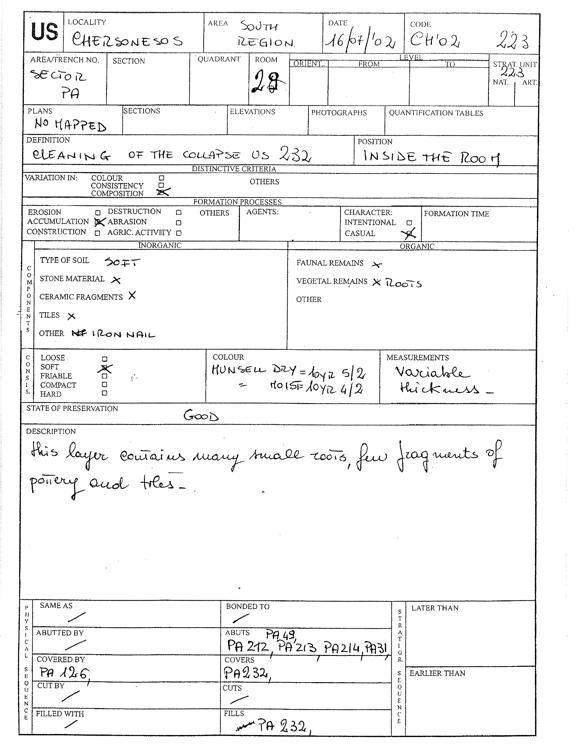 US
LOCALITY
CHERSONESOS
AREA SOUTH
REGION
DATE
16/07/'02
CODE
CH'02 223
AREA/TRENCH NO.
SECTOR
PA
SECTION
QUADRANT
ROOM
28
LEVEL
ORIENT. FROM TO
STRAT. UNIT
223
NAT. ART.
PLANS
NO MAPPED
SECTIONS
ELEVATIONS
PHOTOGRAPHS
QUANTIFICATION TABLES
DEFINITION
CLEANING OF THE COLLAPSE US 232
POSITION
INSIDE THE ROOM
DISTINCTIVE CRITERIA
VARIATION IN: COLOUR
CONSISTENCY
COMPOSITION
OTHERS
FORMATION PROCESSES
EROSION DESTRUCTION OTHERS
ACCUMULATION ABRASION
CONSTRUCTION AGRIC. ACTIVIIY
AGENTS:
CHARACTER:
INTENTIONAL
CASUAL
FORMATION TIME
COMPONENTS
INORGANIC
TYPE OF SOIL SOFT
STONE MATERIAL X
CERAMIC FRAGMENTS X
TILES X
OTHER IRON NAIL
ORGANIC
FAUNAL REMAINS X
VEGETAL REMAINS X ROOTS
OTHER
CONSIS.
LOOSE
SOFT
FRIABLE
COMPACT
HARD
COLOUR
MUNSELL DRY = 10YR 5/2
= MOIST = 10YR 4/2
MEASUREMENTS
Variable
thickness -
STATE OF PRESERVATION
GOOD
DESCRIPTION
this layer contains many small roots, few fragments of
pottery and tiles -
PHYSICAL SEQUENCE
SAME AS
BONDED TO
ABUTTED BY
ABUTS PA 49,
PA 212, PA 213, PA 214, PA 31,
COVERED BY
PA 126,
COVERS
PA 232,
CUT BY
CUTS
FILLED WITH
FILLS
PA 232,
STRATIGR. SEQUENCE
LATER THAN
EARLIER THAN